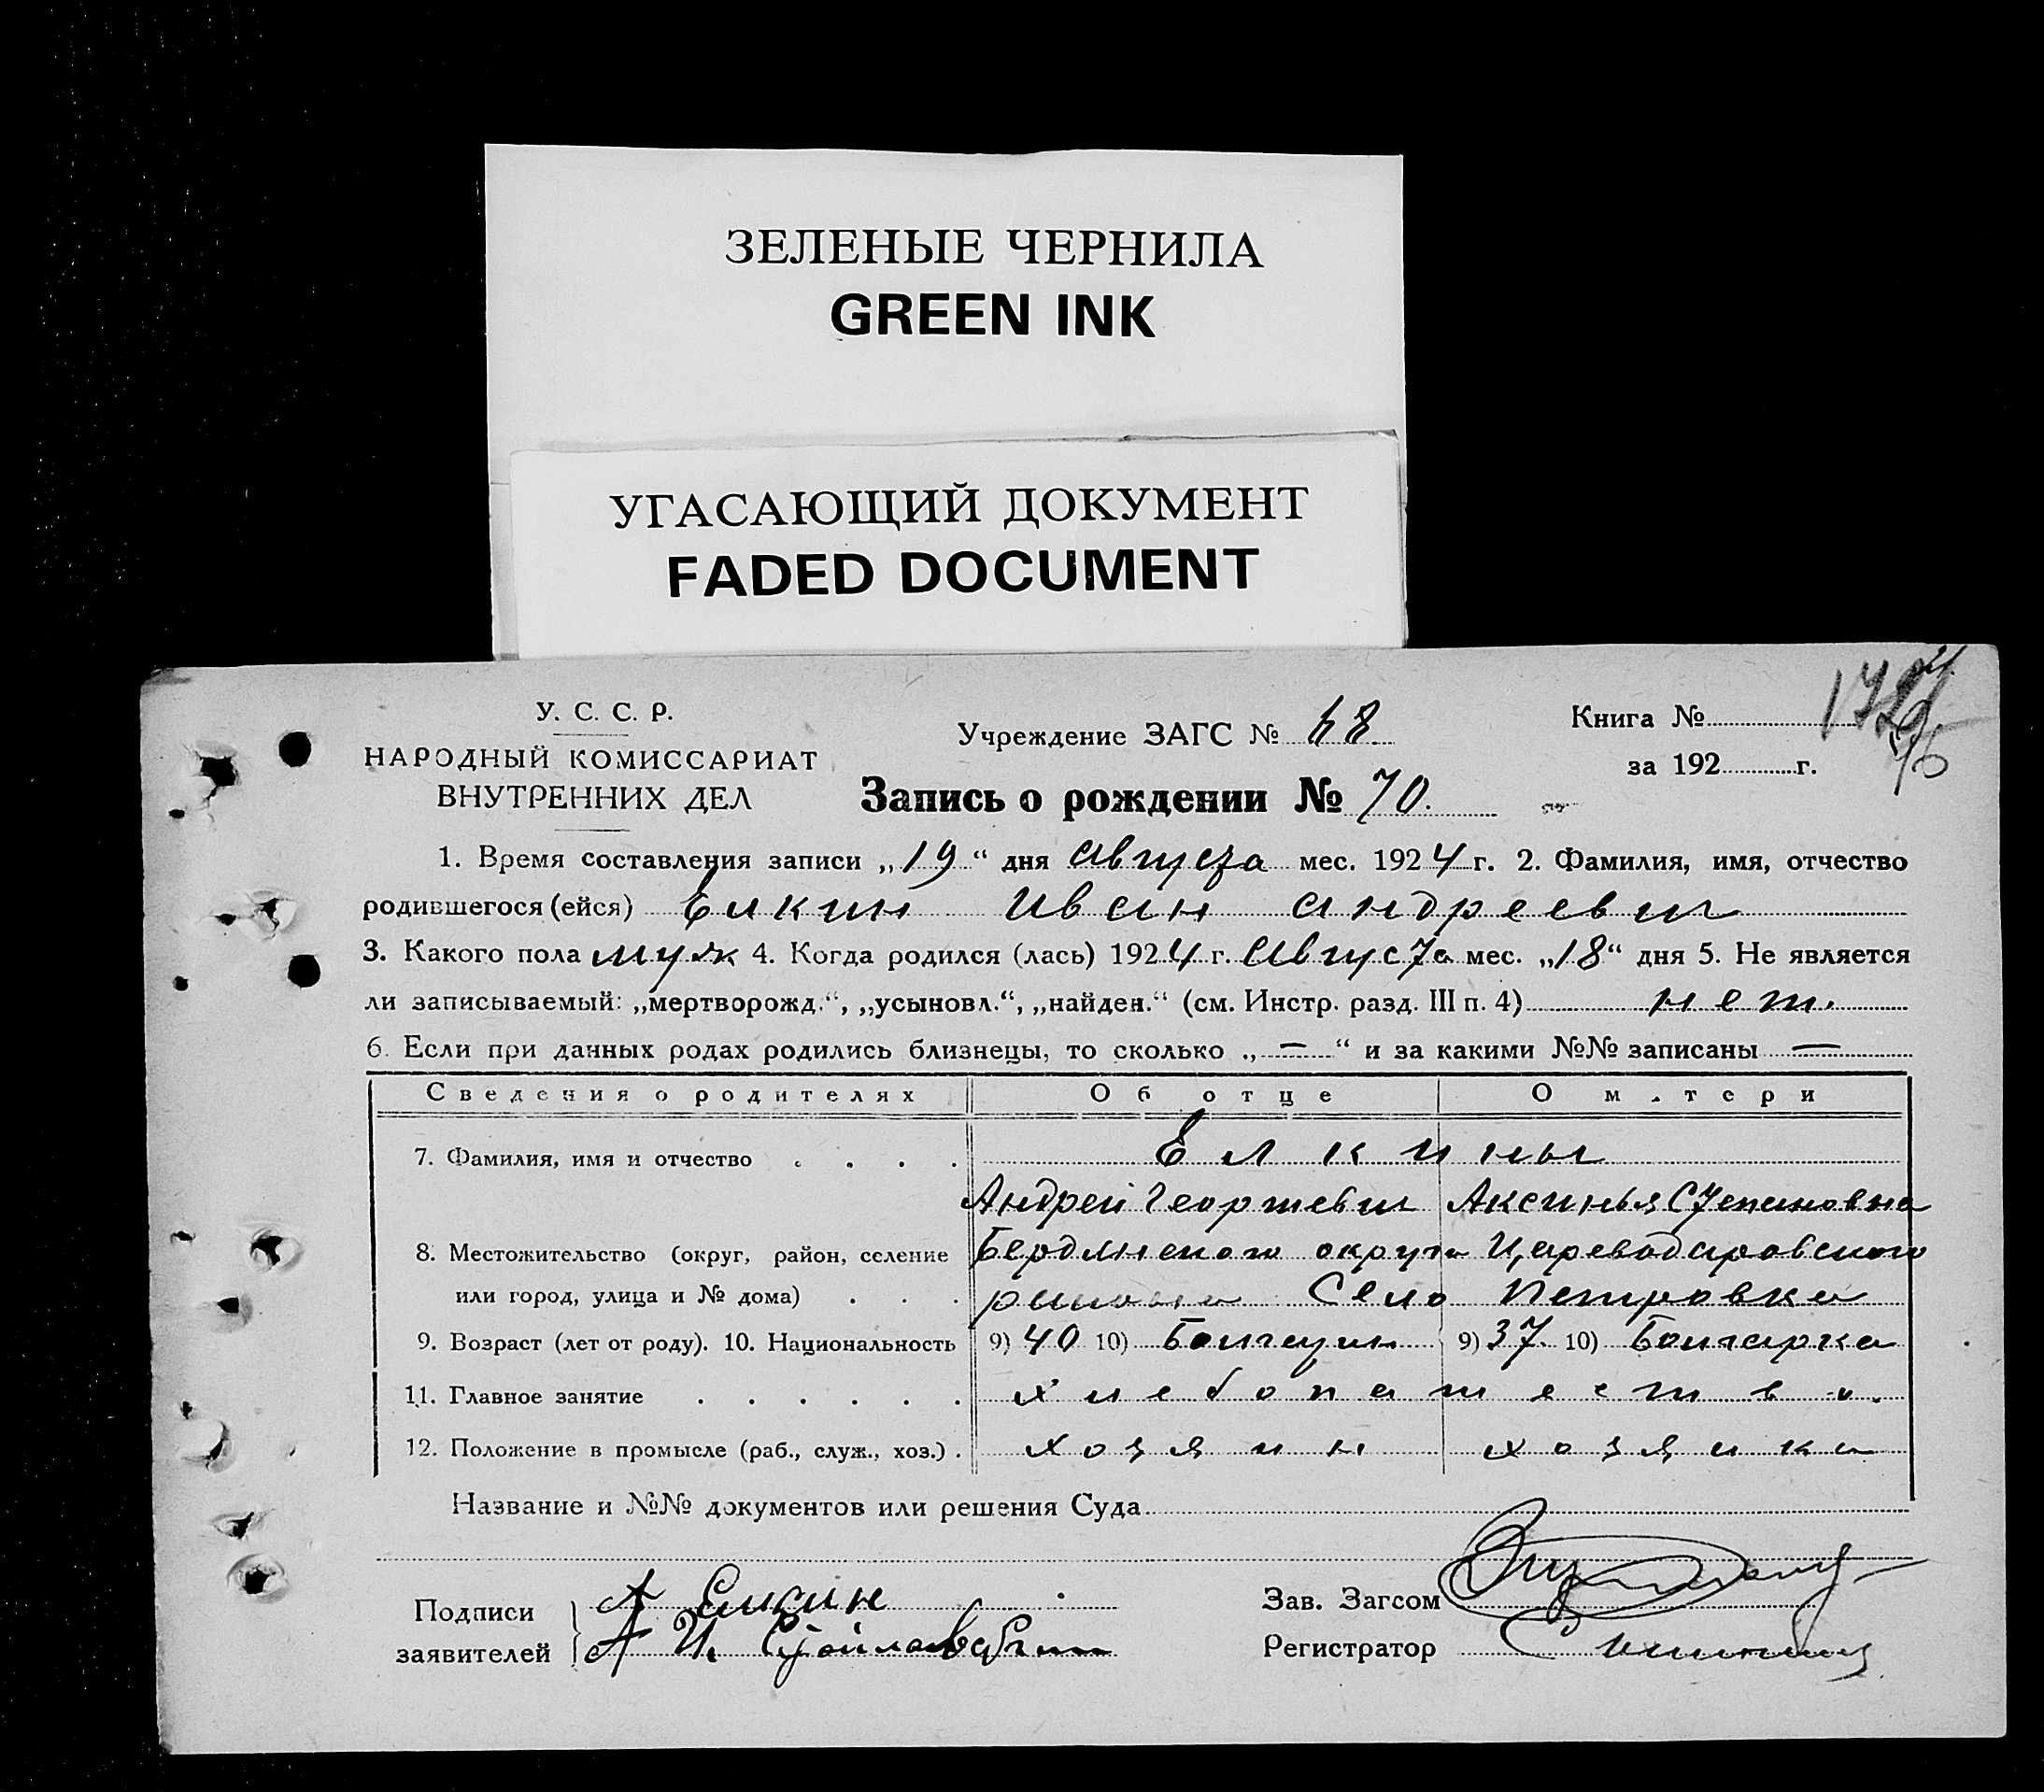 ЗЕЛЕНЫЕ ЧЕРНИЛА
GREEN INK
УГАСАЮЩИЙ ДОКУМЕНТ
FADED DOCUMENT
У. С. С. Р.
НАРОДНЫЙ КОМИССАРИАТ
ВНУТРЕННИХ ДЕЛ
Учреждение ЗАГС №
Книга №
за 192 г.
Запись о рождении № 70.
1. Время составления записи „19“ дня Августа мес. 1924 г. 2. Фамилия, имя, отчество
родившегося (ейся) Елкин Иван Андреевич
3. Какого пола муж 4. Когда родился (лась) 1924 г. Августа мес. „18“ дня 5. Не является
ли записываемый: „мертворожд.“, „усыновл.“, „найден.“ (см. Инстр. разд. III п. 4) нет.
6. Если при данных родах родились близнецы, то сколько „—“ и за какими №№ записаны —
Сведения о родителях Об отце О матери
7. Фамилия, имя и отчество . . . . Елкины
Андрей Георгиевич Аксинья Степановна
8. Местожительство (округ, район, селение Бердянского округа Цареводаровского
или город, улица и № дома) . . . района Село Петровка
9. Возраст (лет от роду). 10. Национальность 9) 40 10) Болгарин 9) 37. 10) Болгарка
11. Главное занятие . . . . . . хлебопашество.
12. Положение в промысле (раб., служ., хоз.) . хозяин хозяика
Название и №№ документов или решения Суда
Подписи А Елкин
заявителей А И.
Зав. Загсом
Регистратор